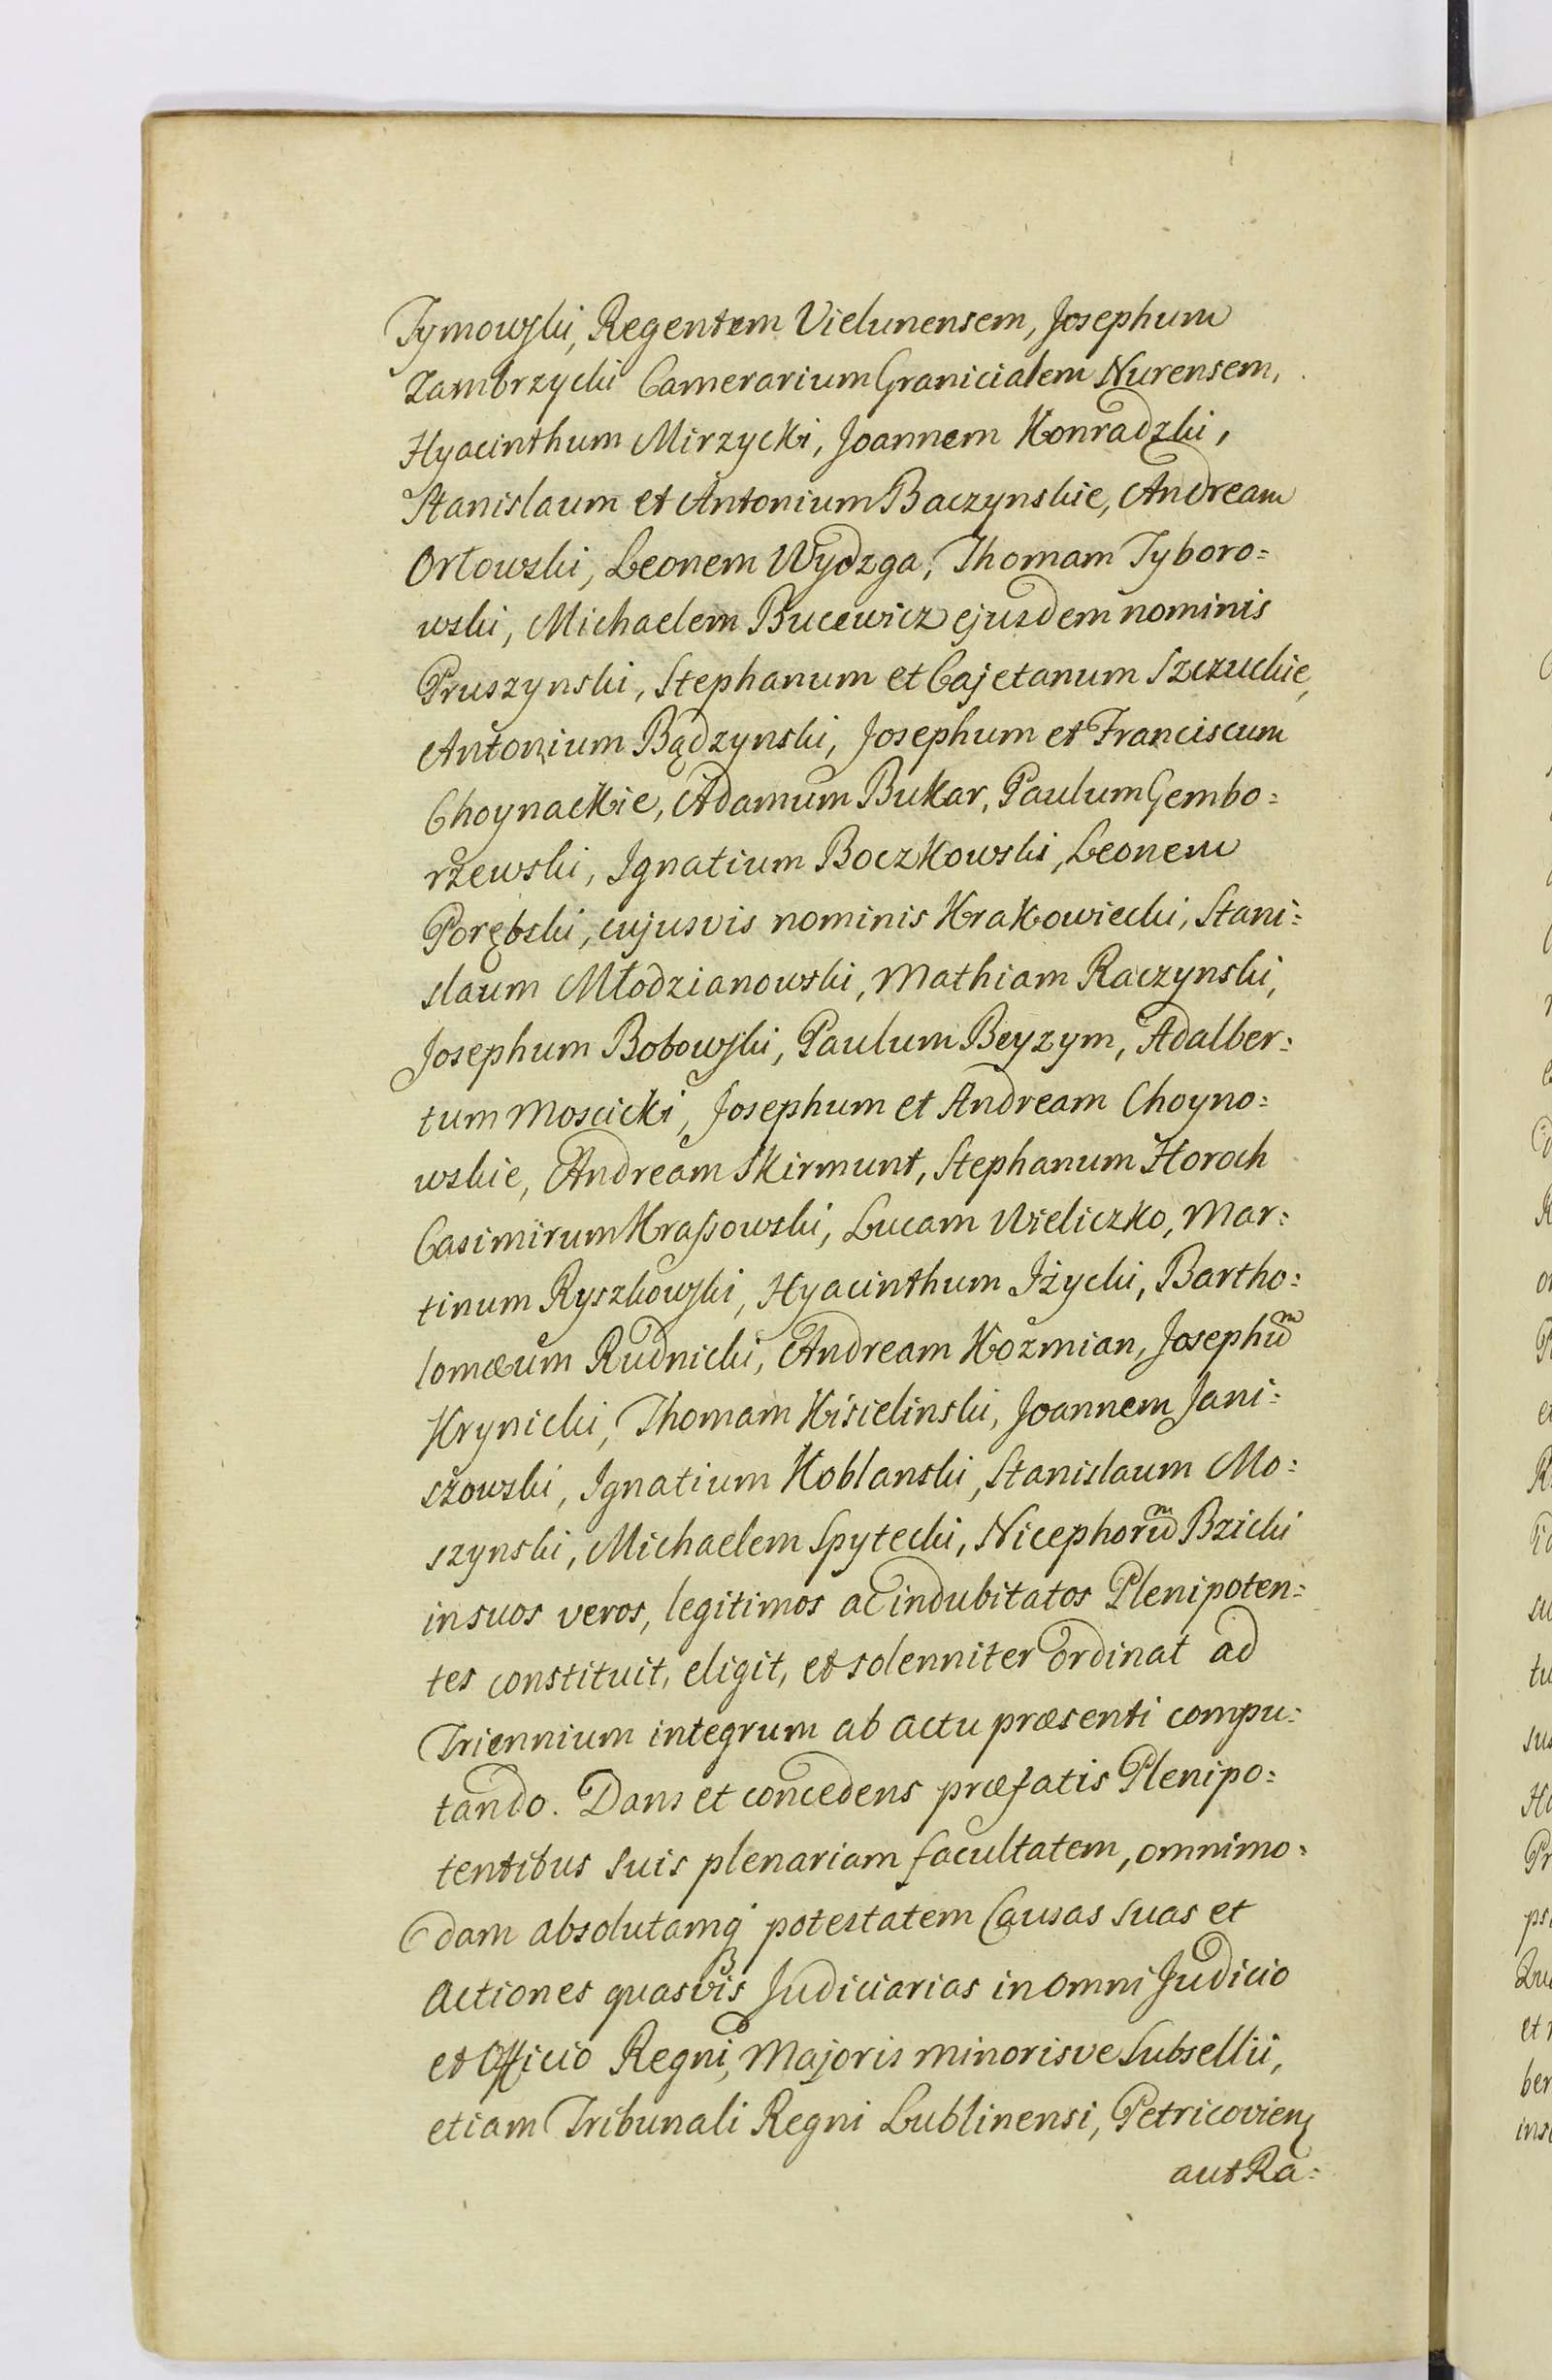 Tymowski, Regentem Vielunensem, Josephum
Zambrzycki Camerarium Granicialem Nurensem,
Hyacinthum Mirzycki, Joannem Konradzki,
Stanislaum et Antonium Baczynskie, Andream
Orłowski, Leonem Wydzga, Thomam Tyboro=
wski, Michaelem Bucewicz ejusdem nominis
Pruszynski, Stephanum et Cajetanum Szczuckie,
Antonium Bądzynski, Josephum et Franciscum
Choynackie, Adamum Bukar, Paulum Gembo=
rzewski, Ignatium Boczkowski, Leonem
Porębski, cujusvis nominis Krakowiecki, Stani=
slaum Młodzianowski, Mathiam Raczynski,
Josephum Bobowski, Paulum Beyzym, Adalber=
tum Moscicki, Josephum et Andream Choyno=
wskie, Andream Skirmunt, Stephanum Horoch
Casimirum Krassowski, Lucam Wieliczko, Mar=
tinum Ryszkowski, Hyacinthum Iżycki, Bartho=
lomæum Rudnicki, Andream Kozmian, Josephũ
Krynicki, Thomam Kisielinski, Joannem Jani=
szowski, Ignatium Koblanski, Stanislaum Mo=
szynski, Michaelem Spytecki, Nicephorũ Bzicki
in suos veros, legitimos ac indubitatos Plenipoten=
tes constituit, eligit, et solenniter ordinat ad
Triennium integrum ab actu præsenti compu=
tando. Dans et concedens præfatis Plenipo=
tentibus suis plenariam facultatem, omnimo=
dam absolutamq̃ potestatem Causas suas et
Actiones quasvis Judiciarias in omni Judicio
et Officio Regni, Majoris minorisve Subsellii,
etiam Tribunali Regni Lublinensi, Petricovien
aut Ra=